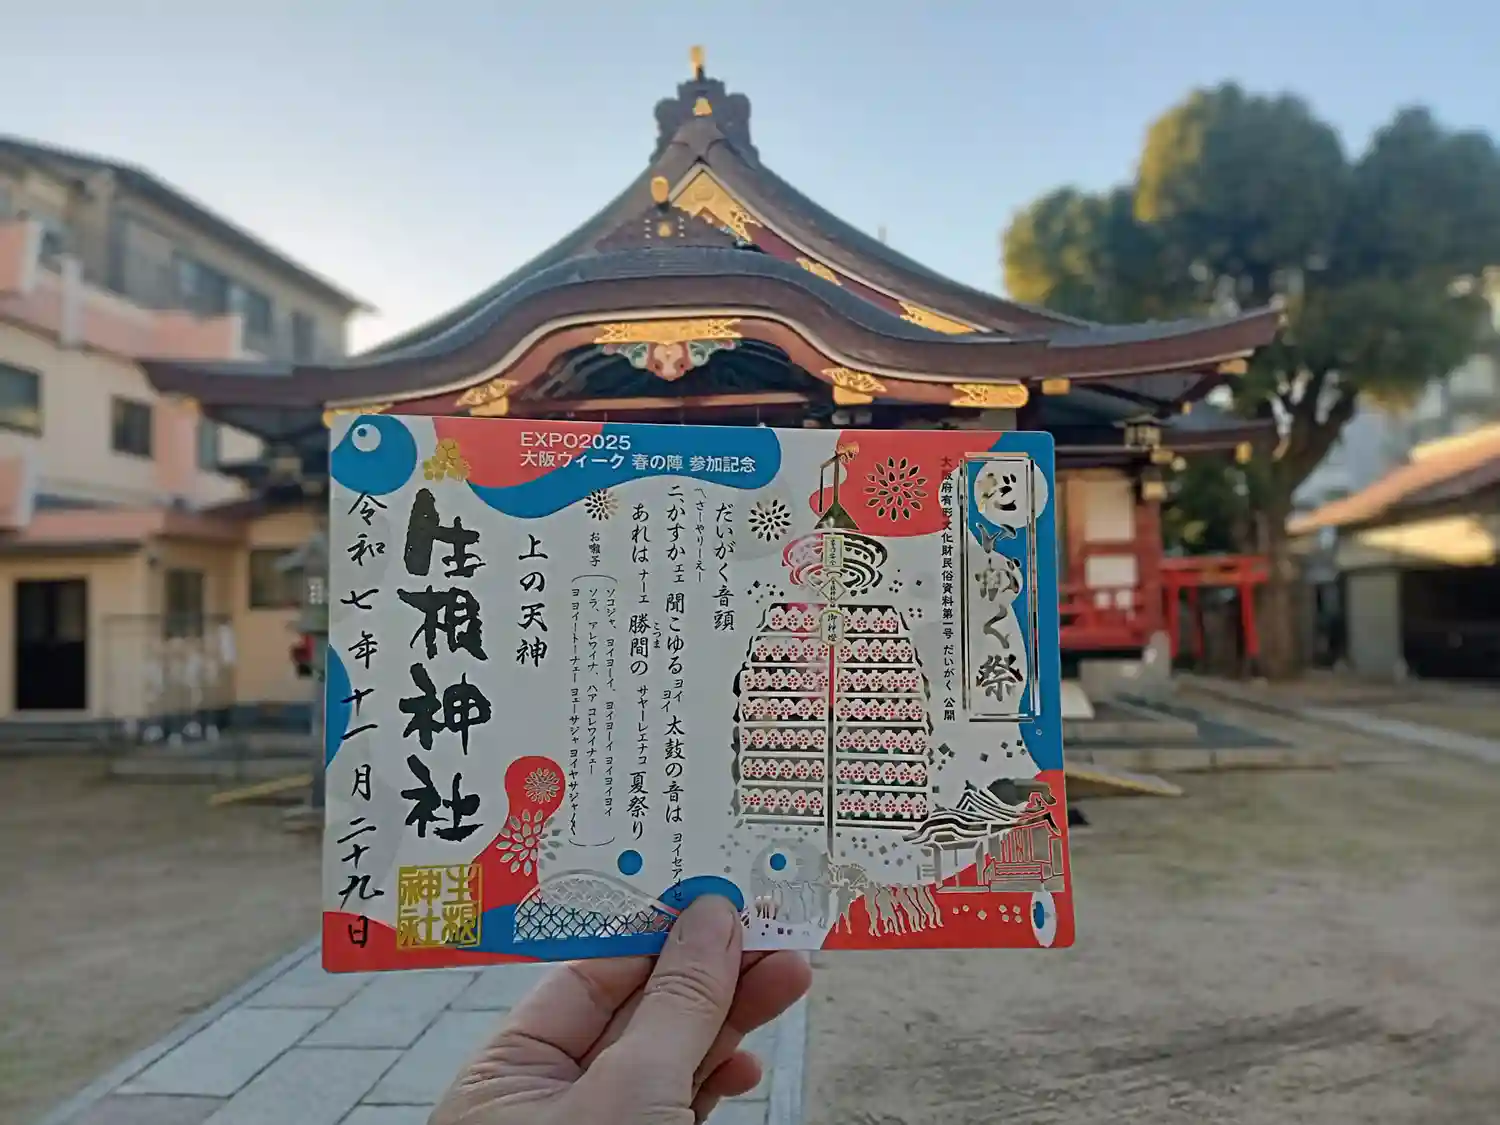 EXPO2025
大阪ウィーク 春の陣 参加記念
だいがく祭
大阪府有形文化財民俗資料第一号 だいがく 公開
御神燈
だいがく音頭
(さーやりーえー
二、かすかェェ 聞こゆるヨイヨイ 太鼓の音は ヨイセアよせ
あれはナーェ 勝間の サヤーレエナコ 夏祭り
こつま
お囃子
ソコジャ、ヨイヨーイ、ヨイヨーイ ヨイヨイヨイ
ソラ、アレワイナ、ハア コレワイナェー
ヨヨイトートーナェー ヨェーサジャ ヨイヤサジャ
上の天神
生根神社
生根
神社
令和七年十一月二十九日